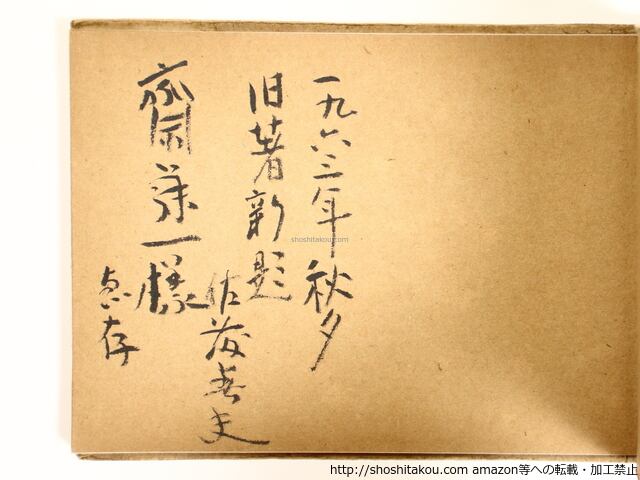 一九六三年秋夕
旧著新題
佐藤春夫
齋藤一様
恵存
shoshitakou.com
http://shoshitakou.com amazon等への転載・加工禁止